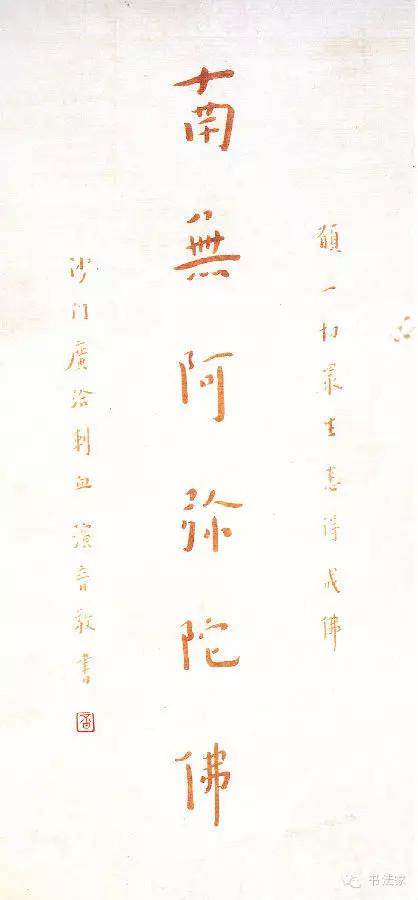 願一切眾生悉得成佛
南無阿弥陀佛
沙門廣洽刺血 演音敬書
音
书法家